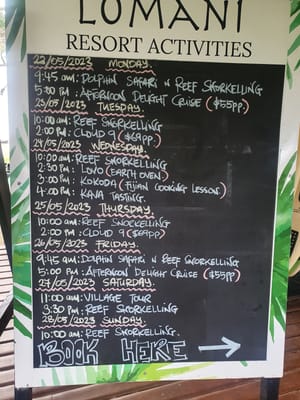 LOMANI
RESORT ACTIVITIES
22/05/2023 MONDAY.
9:45 am: DOLPHIN SAFARI N REEF SNORKELLING
5:00 PM: AFTERNOON DELIGHT CRUISE ($55PP)
23/05/2023 TUESDAY.
10:00 am: REEF SNORKELLING
2:00 PM: CLOUD 9 ($69PP)
24/05/2023 WEDNESDAY.
10:00 am: REEF SNORKELLING
2:30 PM: LOVO (EARTH OVEN)
3:00 PM: KOKODA (FIJIAN COOKING LESSON)
4:00 PM: KAVA TASTING.
25/05/2023 THURSDAY.
10:00 am: REEF SNORKELLING
2:00 PM: CLOUD 9 ($69PP)
26/05/2023 FRIDAY.
9:45 am: DOLPHIN SAFARI N REEF SNORKELLING
5:00 PM: AFTERNOON DELIGHT CRUISE ($55PP)
27/05/2023 SATURDAY.
11:00 am: VILLAGE TOUR
3:30 PM: REEF SNORKELLING
28/05/2023 SUNDAY.
10:00 am: REEF SNORKELLING.
BOOK HERE →